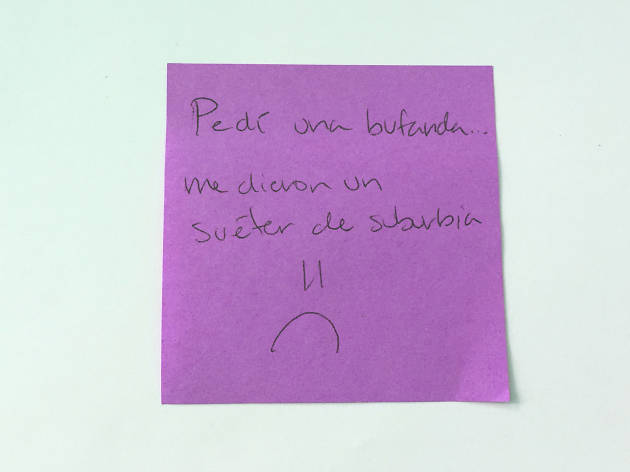 Pedí una bufanda...
me dieron un
suéter de suburbia